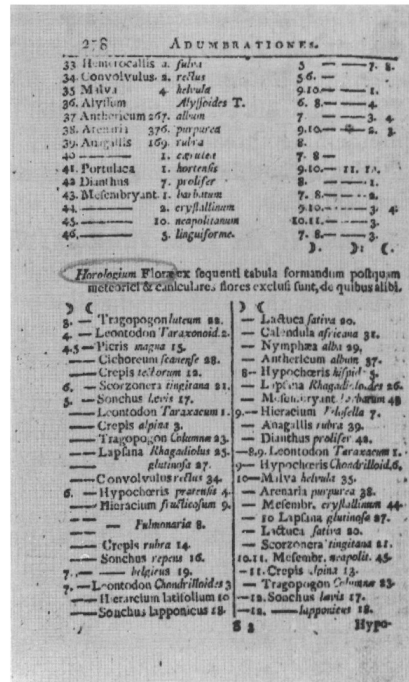 278 ADUMBRATIONES.
33 Hemerocallis 2. fulva 5 — — 7. 8.
34. Convolvulus. 2. rectus 5 6. —
35 Malva 4. helvula 9. 10. — — 1.
36. Alyssum Alyssoides T. 6. 8. — — 4.
37 Anthericum 267. album 7 — — 3. 4
38. Arenaria 376. purpurea 9. 10. — — 2. 3.
39. Anagallis 169. rubra 8.
40 —— 1. cærulea 7. 8 —
41. Portulaca 1. hortensis 9. 10. — 11. 12.
42 Dianthus 7. prolifer 8. — — 1.
43. Mesembryant. 1. barbatum 7. 8. — — 2.
44. —— 2. crystallinum 9. 10. — — 3. 4.
45. —— 10. neapolitanum 10. 11. — 3.
46. —— 5. linguiforme. 7. 8. — — 3.
☽. ☽: ☾.
Horologium Floræ ex sequenti tabula formandum postquam
meteorici & caniculares flores exclusi sunt, de quibus alibi.
☽ ☾
3. — Tragopogon luteum 22.
4. — Leontodon Taraxonoid. 2.
4. 5 — Picris magna 15.
— Cichoreum scanense 28.
— Crepis tectorum 12.
6. — Scorzonera tingitana 21.
5. — Sonchus lævis 17.
— Leontodon Taraxacum 1.
— Crepis alpina 3.
— Tragopogon Columnæ 23.
— Lapsana Rhagadiolus 25.
glutinosa 27.
— Convolvulus rectus 34.
6. — Hypochœris pratensis 4.
— Hieracium fruticosum 9.
— Pulmonaria 8.
— Crepis rubra 14.
— Sonchus repens 16.
7. — — belgicus 19.
7. — Leontodon Chondrilloides 3
— Hieracium latifolium 10
— Sonchus lapponicus 18.
☽ ☾
— Lactuca sativa 20.
— Calendula africana 31.
— Nymphæa alba 29.
— Anthericum album 37.
8 — Hypochœris hispid. 5.
— Lapsana Rhagadioloides 26.
— Mesembryant. barbatum 43
9. — Hieracium Pilosella 7.
— Anagallis rubra 39.
— Dianthus prolifer 42.
— 8. 9. Leontodon Taraxacum 1.
9 — Hypochœris Chondrilloid. 6.
10 — Malva helvula 35.
— Arenaria purpurea 38.
— Mesembr. crystallinum 44.
— 10 Lapsana glutinosa 27.
— Lactuca sativa 20.
— Scorzonera tingitana 21.
10. 11. Mesembr. neapolit. 45.
— 11. Crepis alpina 13.
— Tragopogon Columnæ 23.
— 12. Sonchus lævis 17.
— 12. — lapponicus 18.
S 3 Hypo-